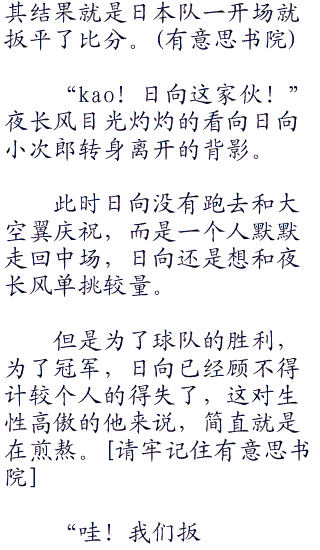 其结果就是日本队一开场就
扳平了比分。(有意思书院)
“kao！日向这家伙！”
夜长风目光灼灼的看向日向
小次郎转身离开的背影。
此时日向没有跑去和大
空翼庆祝，而是一个人默默
走回中场，日向还是想和夜
长风单挑较量。
但是为了球队的胜利，
为了冠军，日向已经顾不得
计较个人的得失了，这对生
性高傲的他来说，简直就是
在煎熬。[请牢记住有意思书
院]
“哇！我们扳